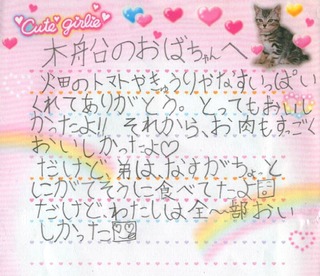 Cute girlie
木船谷のおばちゃんへ
畑のトマトやきゅうりやなすいっぱい
くれてありがとう。とってもおいし
かったよ!! それから、お肉もすっごく
おいしかったよ♡
だけど、弟は、なすがちょっと
にがてそうに食べてたよ
だけど、わたしは、全〜部おい
しかった